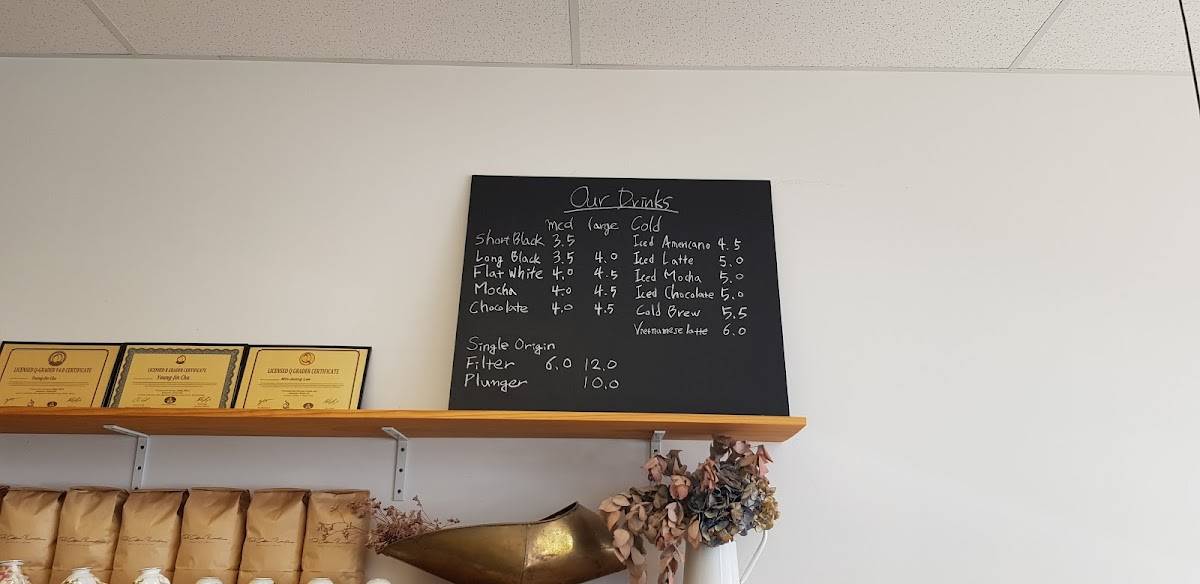 Our Drinks
med large
Short Black 3.5
Long Black 3.5 4.0
Flat White 4.0 4.5
Mocha 4.0 4.5
Chocolate 4.0 4.5
Single Origin
Filter 6.0 12.0
Plunger 10.0
Cold
Iced Americano 4.5
Iced Latte 5.0
Iced Mocha 5.0
Iced Chocolate 5.0
Cold Brew 5.5
Vietnamese latte 6.0
LICENSED Q GRADER CERTIFICATE
Young-Jin Cha
LICENSED R GRADER CERTIFICATE
Young-Jin Cha
LICENSED Q GRADER CERTIFICATE